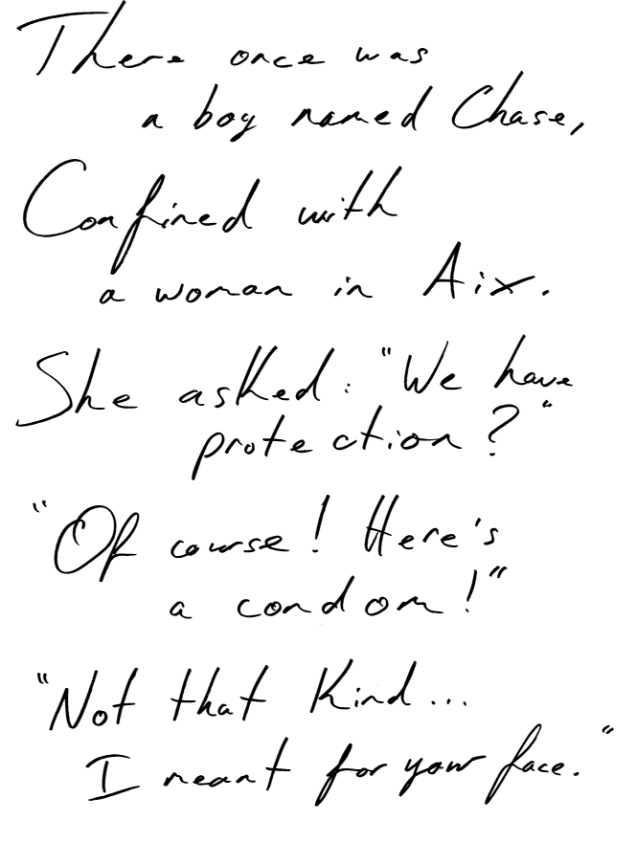 There once was
a boy named Chase,
Confined with
a woman in Aix.
She asked: "We have
protection?"
"Of course! Here's
a condom!"
"Not that kind...
I meant for your face."